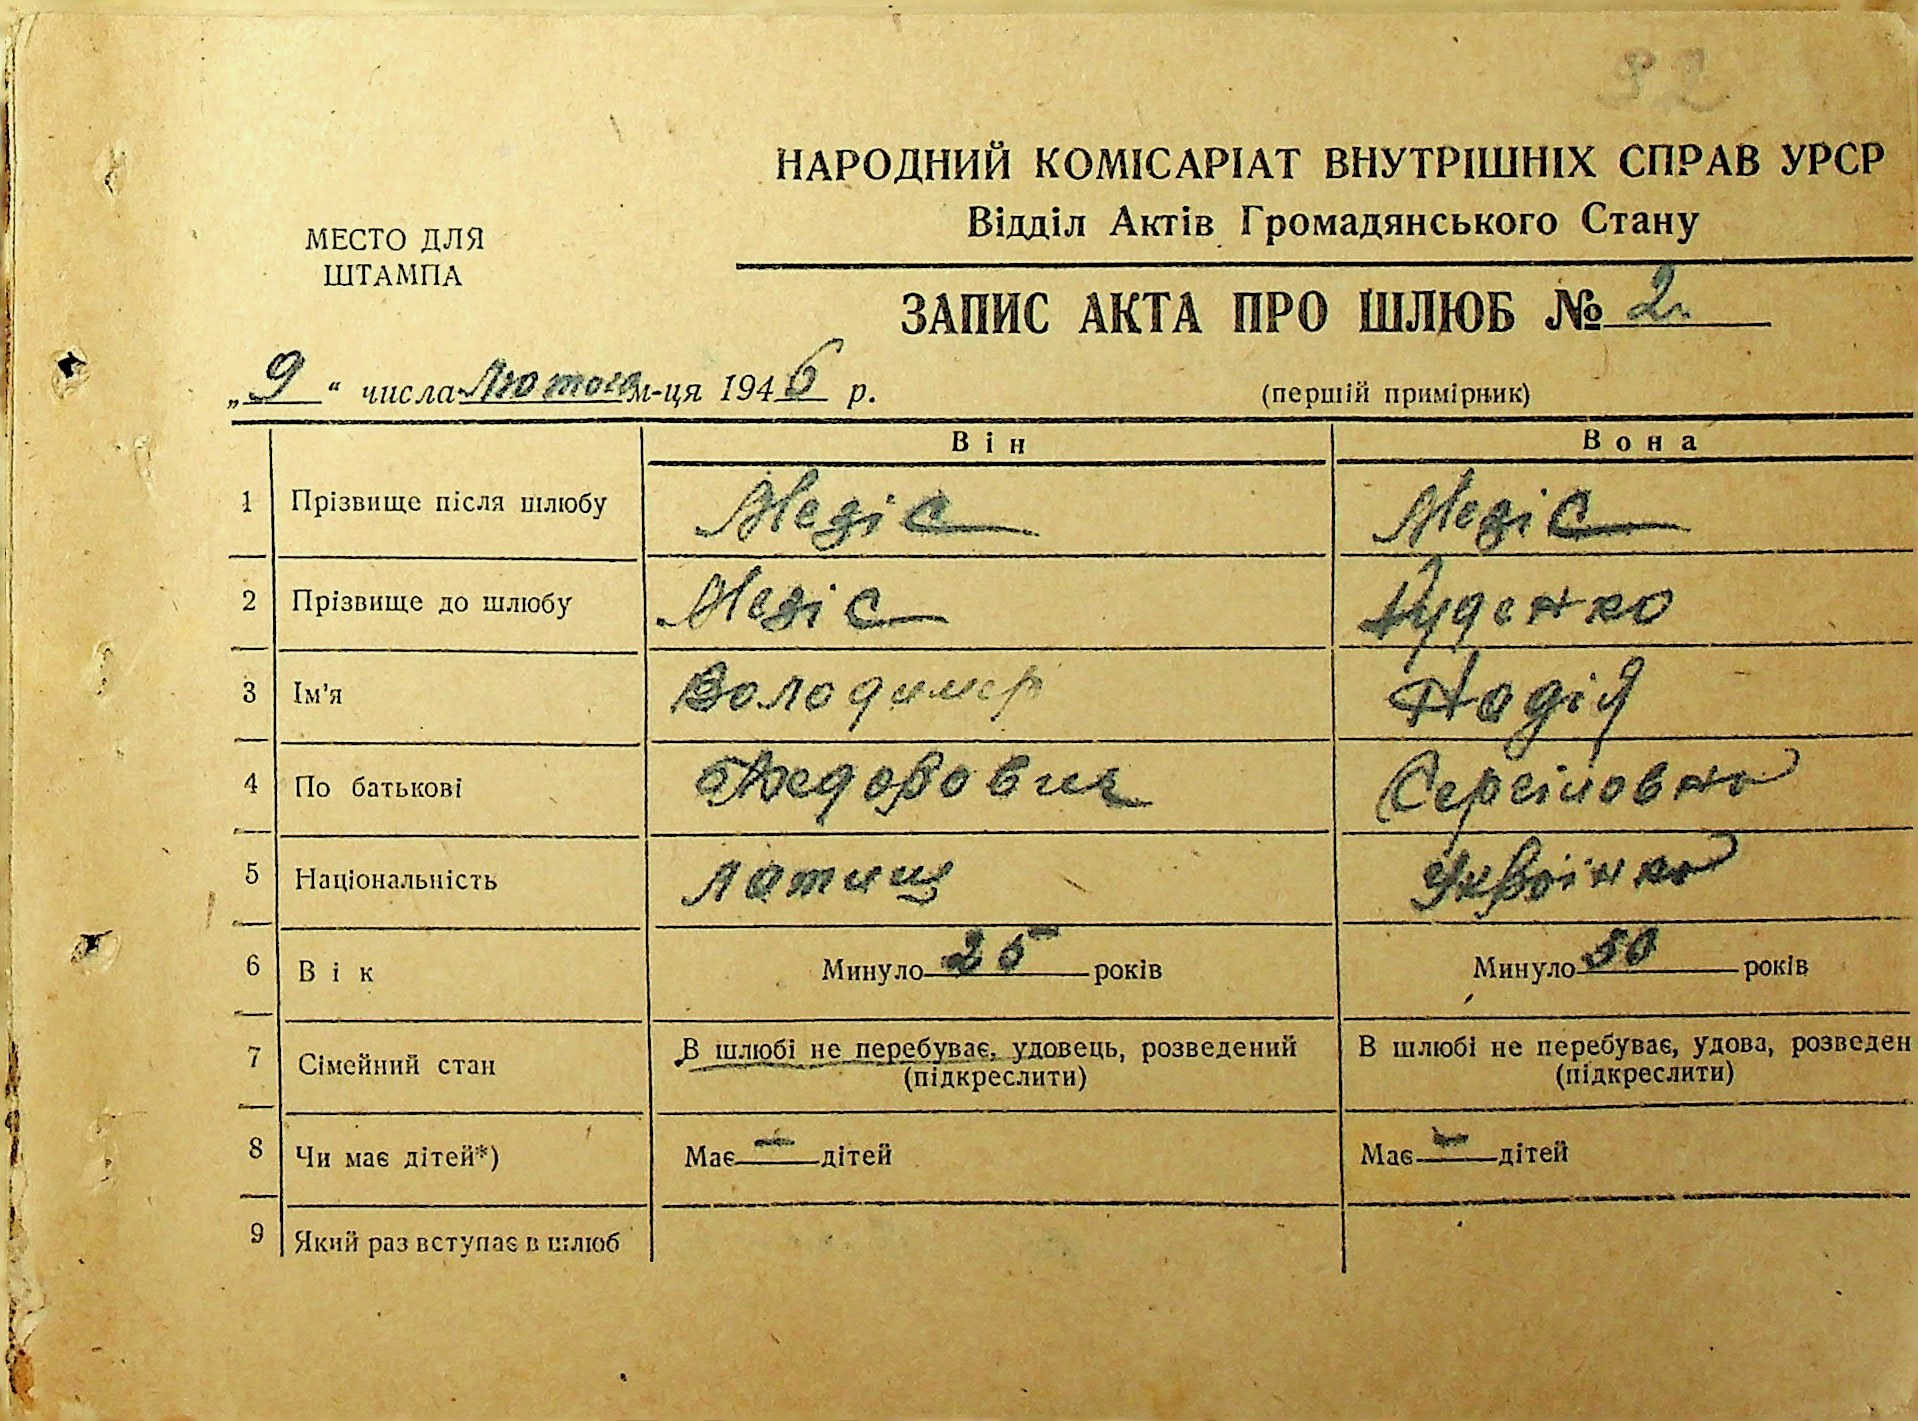 32
НАРОДНИЙ КОМІСАРІАТ ВНУТРІШНІХ СПРАВ УРСР
Відділ Актів Громадянського Стану
МЕСТО ДЛЯ
ШТАМПА
ЗАПИС АКТА ПРО ШЛЮБ № 2
„9“ числа Лютого м-ця 1946 р.
(першій примірник)
Він Вона
1 Прізвище після шлюбу Медіс Медіс
2 Прізвище до шлюбу Медіс Руденко
3 Ім'я Володимир Надія
4 По батькові Федорович Сергіїовна
5 Національність Латиш Українка
6 Вік Минуло 25 років Минуло 30 років
7 Сімейний стан В шлюбі не перебуває, удовець, розведений В шлюбі не перебуває, удова, розведен
(підкреслити) (підкреслити)
8 Чи має дітей*) Має — дітей Має — дітей
9 Який раз вступає в шлюб